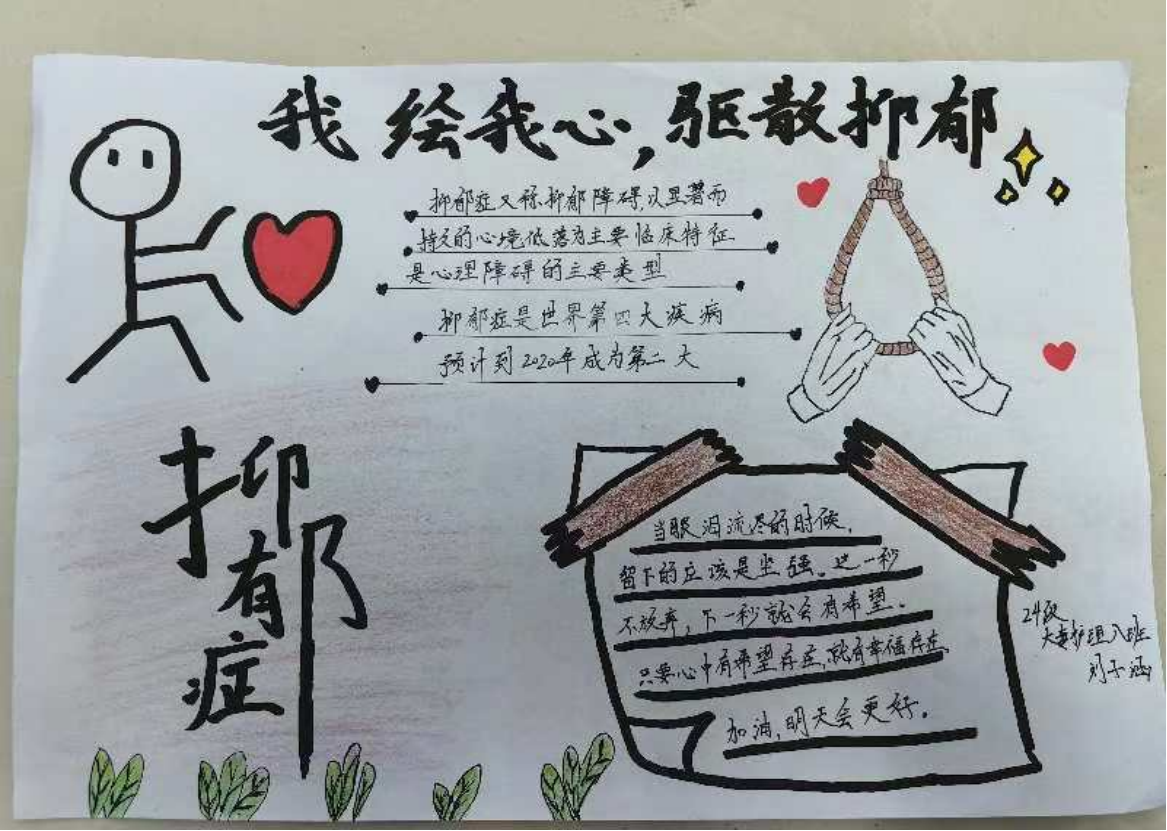 我绘我心,驱散抑郁
抑郁症又称抑郁障碍,以显著而
持久的心境低落为主要临床特征
是心理障碍的主要类型
抑郁症是世界第四大疾病
预计到2020年成为第二大
抑郁症
当眼泪流尽的时候,
留下的应该是坚强。这一秒
不放弃,下一秒就会有希望。
只要心中有希望存在,就有幸福存在。
加油,明天会更好。
24级
大专护理八班
刘子涵